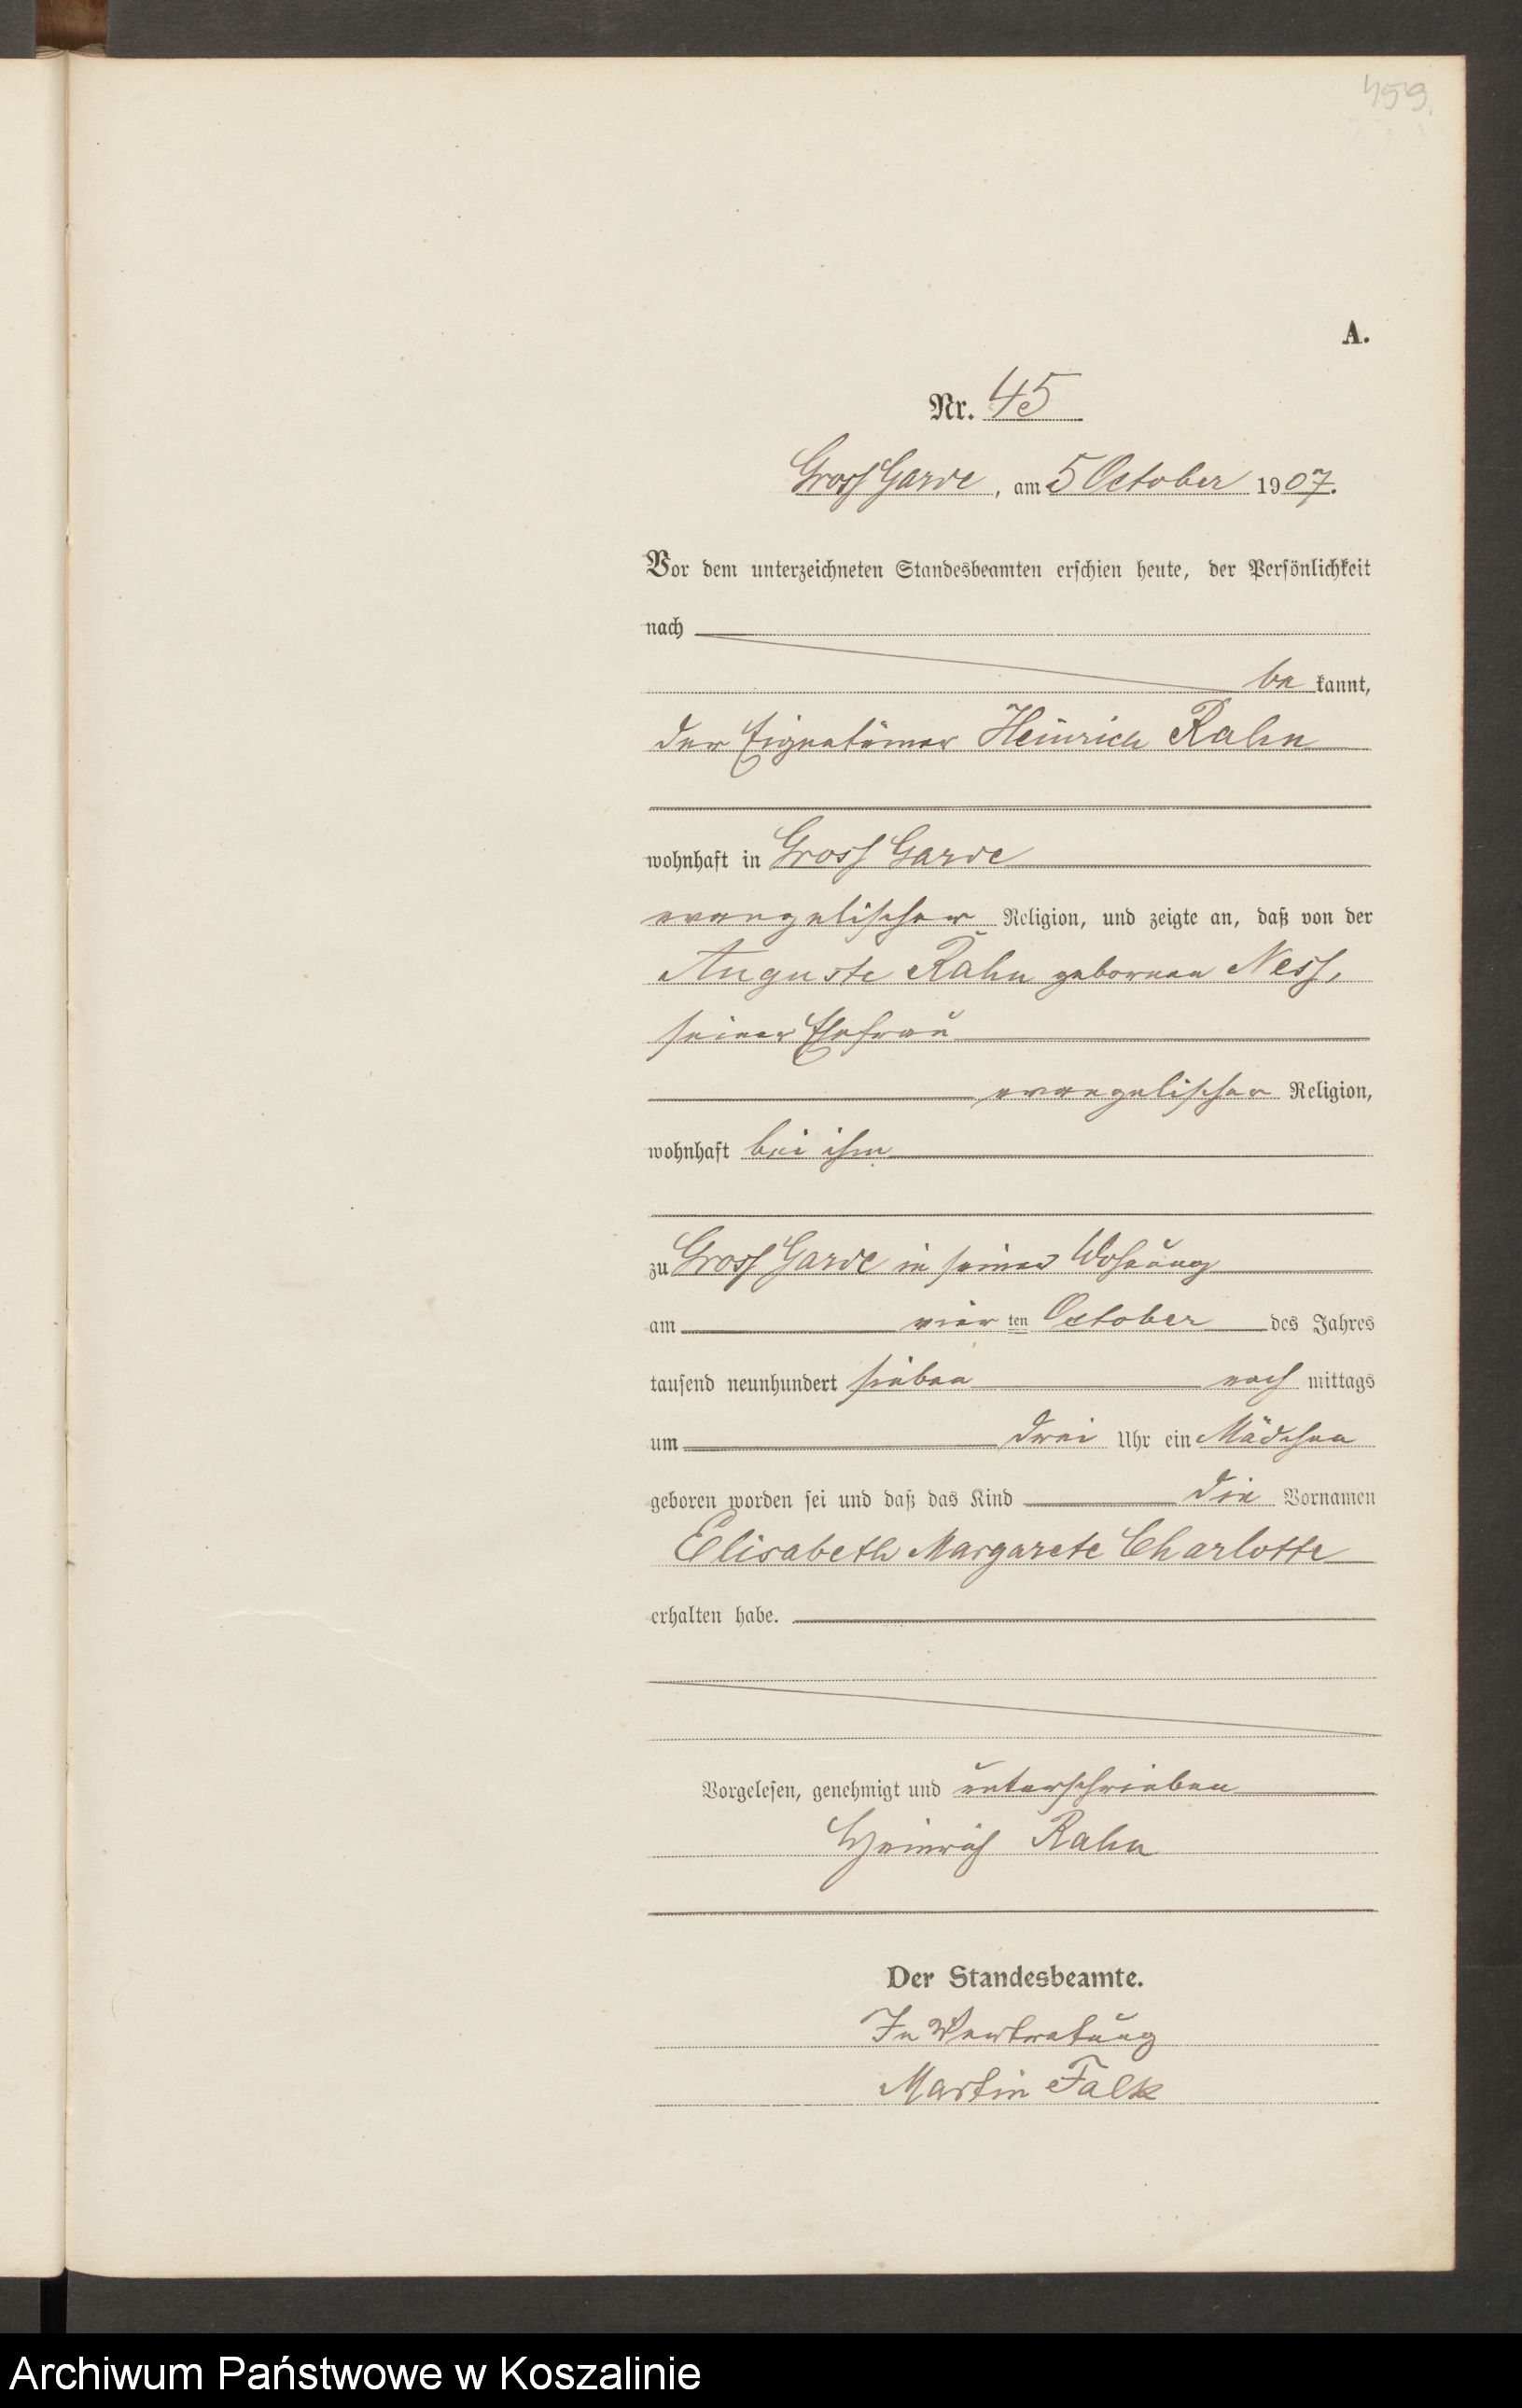 459.
A.
Nr. 45
Gross Garde, am 5 October 1907.
Vor dem unterzeichneten Standesbeamten erschien heute, der Persönlichkeit
nach
be kannt,
der Eigentümer Heinrich Rahn
wohnhaft in Gross Garde
evangelischer Religion, und zeigte an, daß von der
Auguste Rahn geborenen Ness,
seiner Ehefrau
evangelischer Religion,
wohnhaft bei ihm
zu Gross Garde in seiner Wohnung
am vier ten October des Jahres
tausend neunhundert sieben nach mittags
um drei Uhr ein Mädchen
geboren worden sei und daß das Kind die Vornamen
Elisabeth Margarete Charlotte
erhalten habe.
Vorgelesen, genehmigt und unterschrieben
Heinrich Rahn
Der Standesbeamte.
In Vertretung
Martin Falk
Archiwum Państwowe w Koszalinie